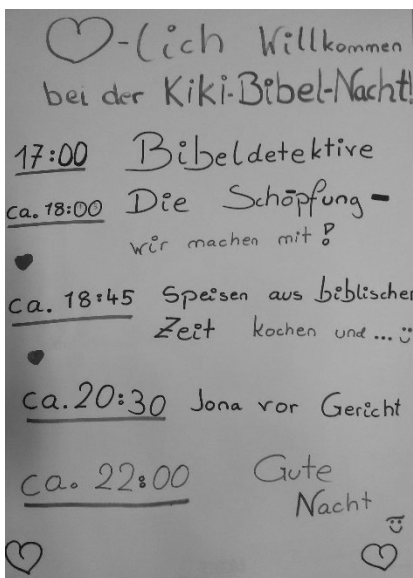 ♡-lich Willkommen
bei der Kiki-Bibel-Nacht!
17:00 Bibeldetektive
ca. 18:00 Die Schöpfung-
wir machen mit!
ca. 18:45 Speisen aus biblischer
Zeit kochen und ... ☺
ca. 20:30 Jona vor Gericht
ca. 22:00 Gute
Nacht ☺